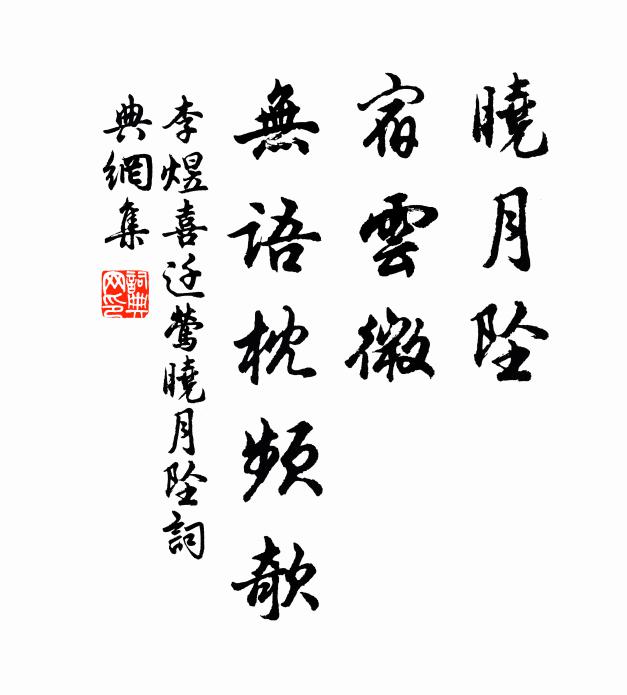 曉月坠
宿雲微
無語枕頻欹
李煜喜迁鶯曉月坠詞
典網集
詞典
网印